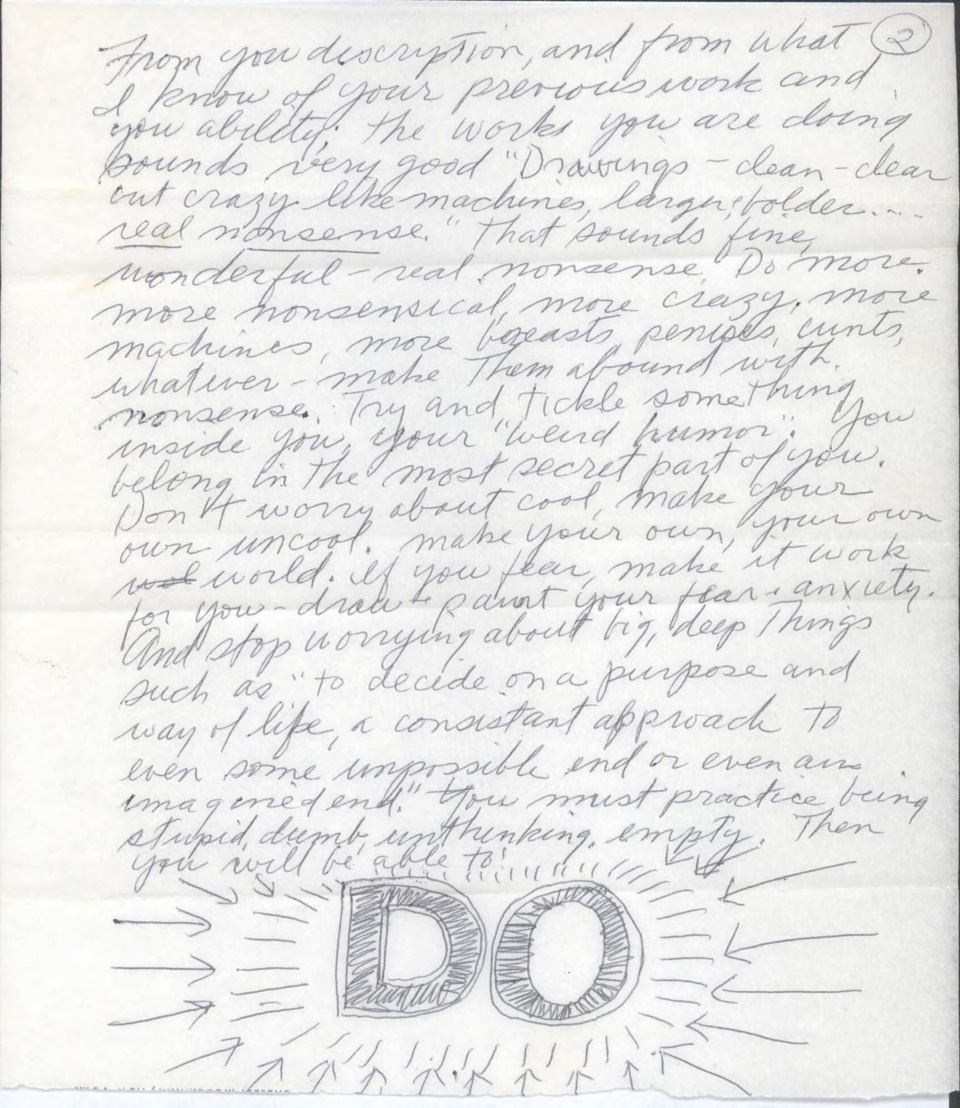 2
From you description, and from what
I know of your previous work and
you ability; the works you are doing
sounds very good "Drawings – clean – clear
but crazy like machines, larger, bolder....
real nonsense." That sounds fine,
wonderful – real nonsense. Do more.
more nonsensical, more crazy, more
machines, more breasts, penises, cunts,
whatever – make them abound with
nonsense. Try and tickle something
inside you, your "weird humor". You
belong in the most secret part of you.
Don't worry about cool, make your
own uncool. make your own, your own
world. If you fear, make it work
for you – draw + paint your fear + anxiety.
And stop worrying about big, deep things
such as "to decide on a purpose and
way of life, a consistant approach to
even some impossible end or even an
imagined end." You must practice being
stupid, dumb, unthinking, empty. Then
you will be able to:
DO